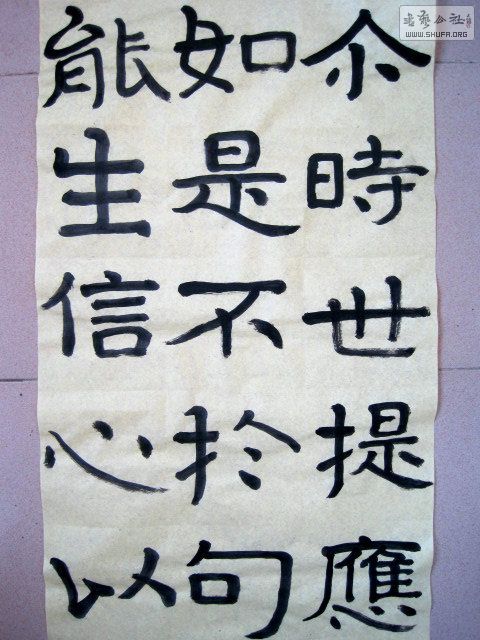 尒時世提應
如是不於句
能生信心以
書藝公社
WWW.SHUFA.ORG